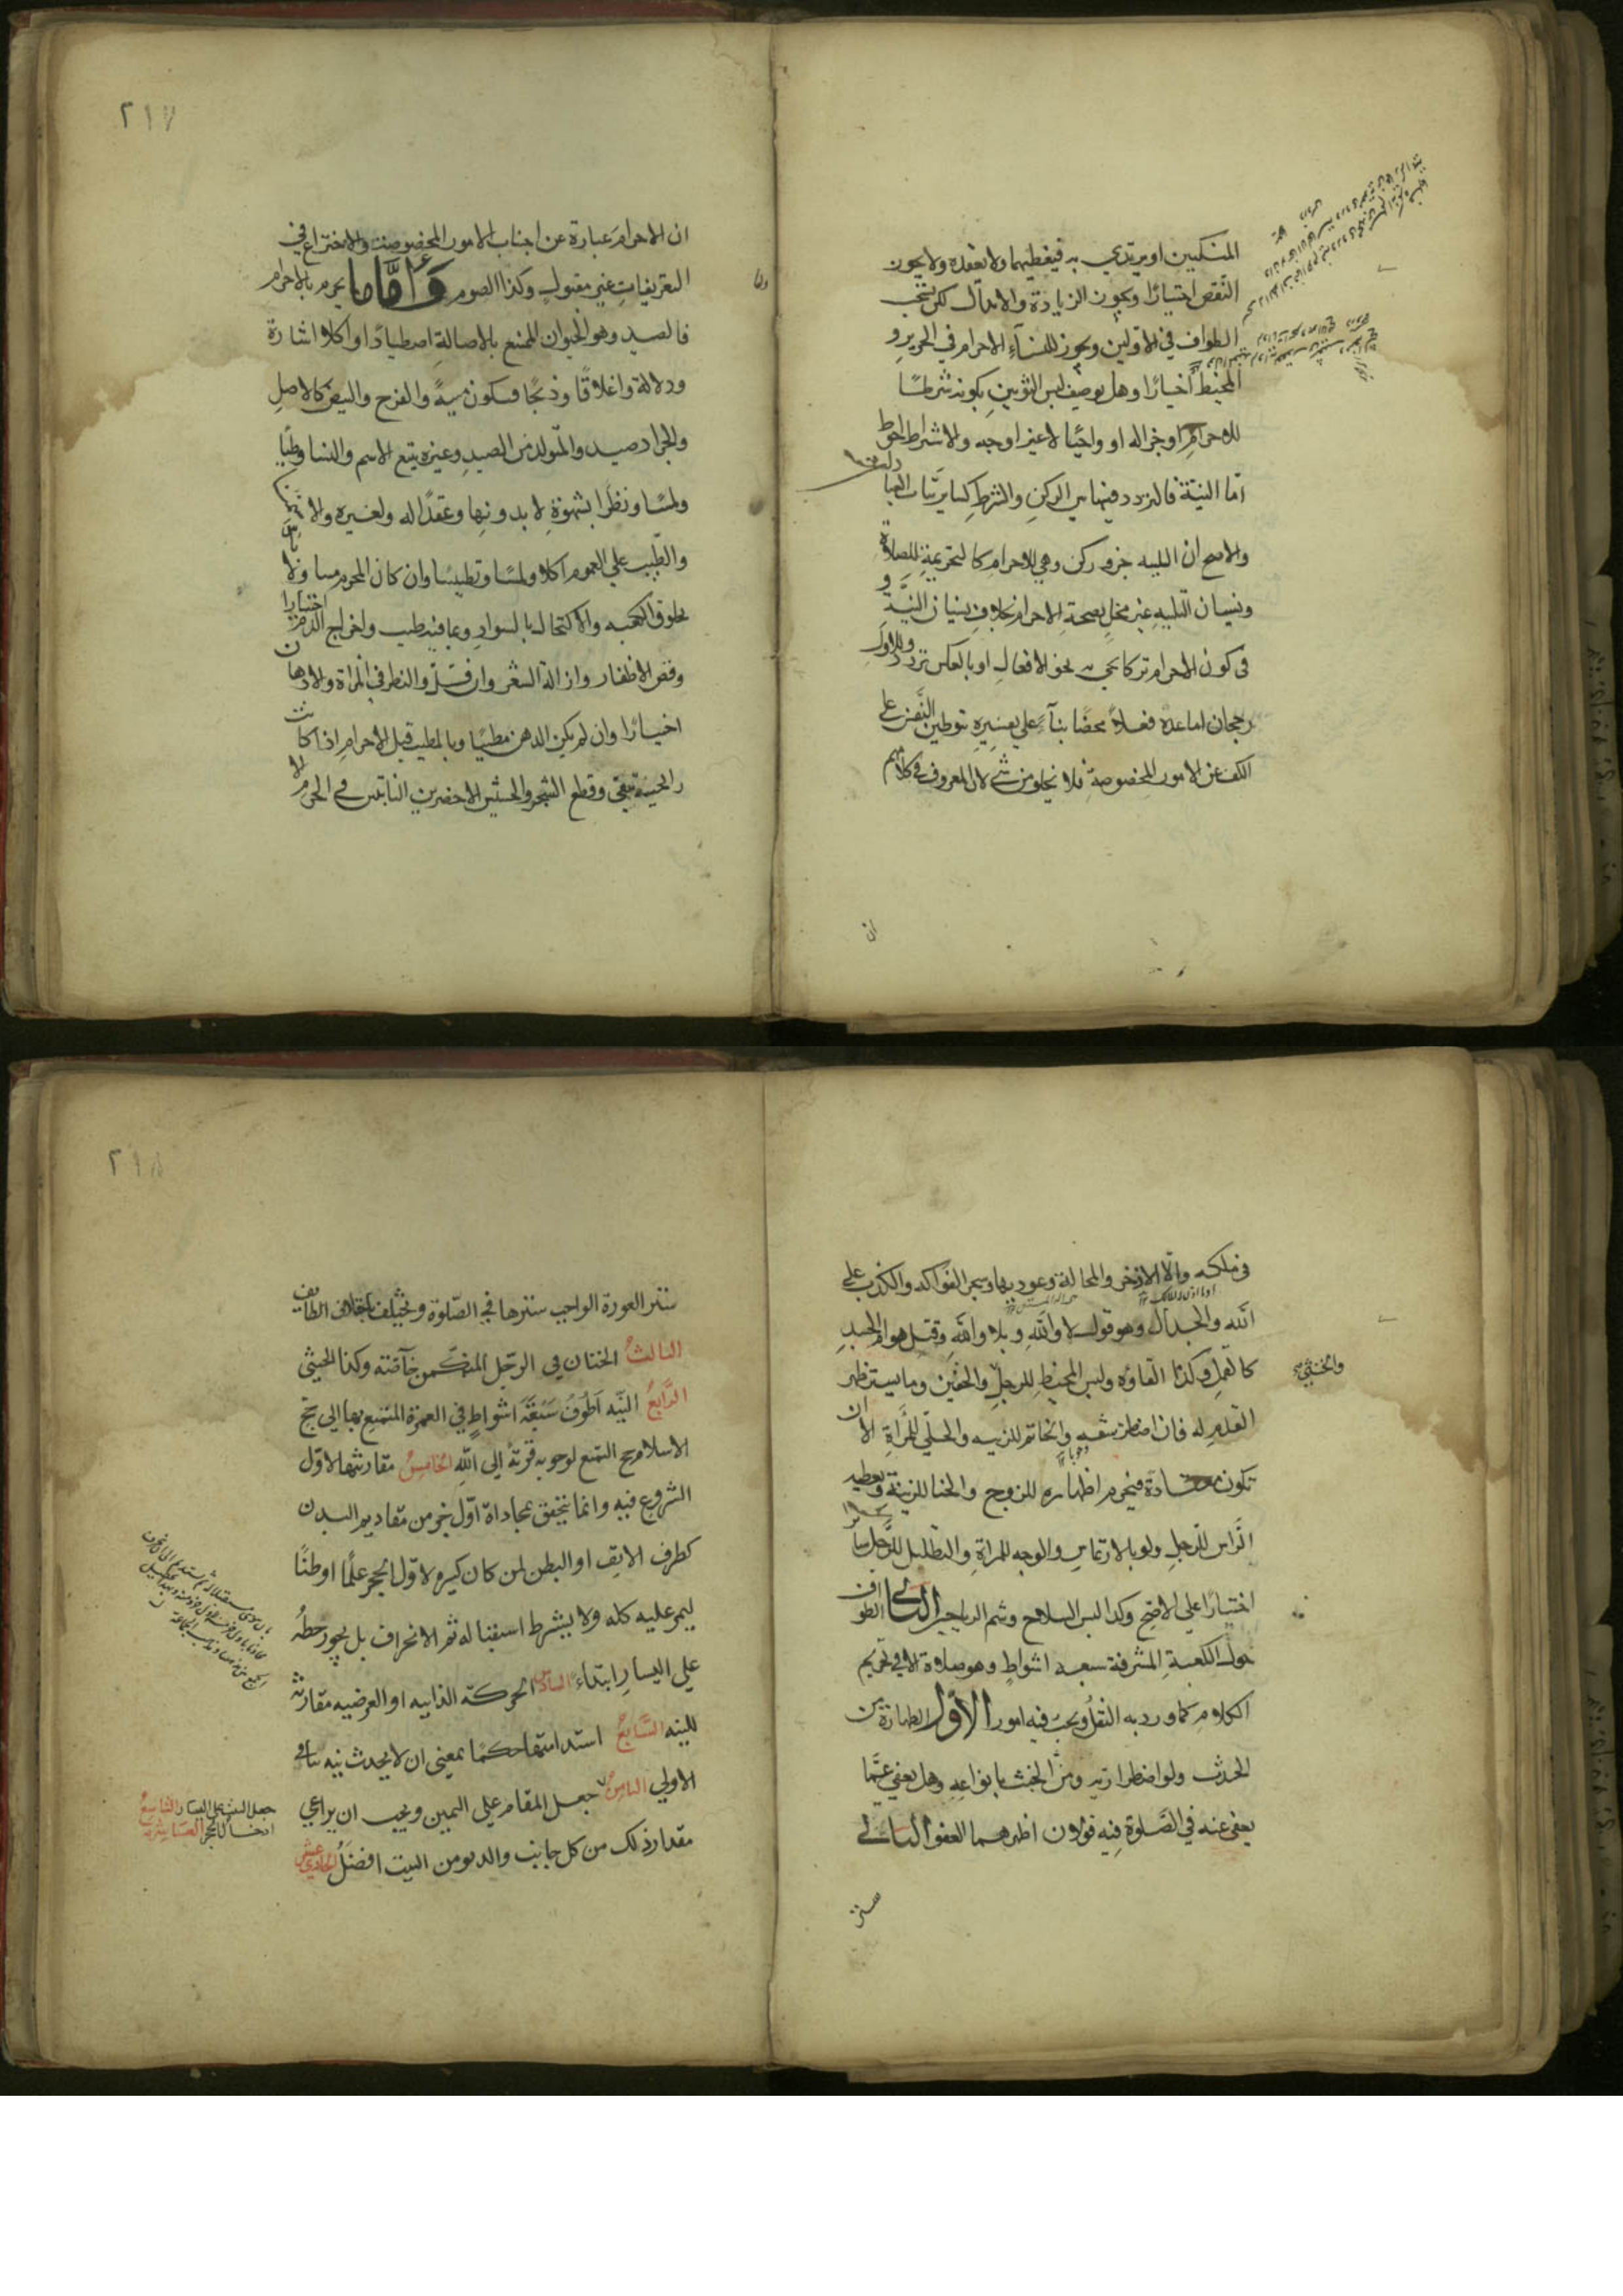 المنكبين او يرتدي به فيغطيهما ولا يعقده ولا يجوز
النقص اختيارا ويجوز الزيادة والابدال لكن يستحب
الطواف في الاولين ويجوز للنساء الاحرام في الحرير و
المخيط اختيارا وهل يوصف لبس الثوبين بكونه شرطا
للاحرام او جزا له او واجبا لا غير اوجه والاشتراط احوط
اما النية فالتردد فيها بين الركن والشرط كما يرتاب
والاصح ان التلبيه جزو ركن وهي للاحرام كالتحريمة للصلاة
ونسيان التلبيه غير مخل بصحة الاحرام بخلاف نسيان النية و
في كون الاحرام تركا يجي به بعض الافعال او بالعكس تردد وللاول
رجحان اما عده فعلا محضا بناء علي تفسيره بتوطين النفس علي
الكف عن الامور المخصوصة فلا يخلو من شي لان المعروف في كلامهم
ان
٢١٧
ان الاحرام عبارة عن اجتناب الامور المخصوصة والاختراع في
التعريفات غير مقبول وكذا الصوم وأما ما يحرم بالاحرام
فالصيد وهو الحيوان الممتنع بالاصالة اصطيادا او اكلا اشارة
ودلالة واغلاقا وذبحا فيكون ميتة والفرخ والبيض كالاصل
والجراد صيد والمتولد من الصيد وغيره يتبع الاسم والنسا وطيا
ولمسا ونظرا بشهوة لا بدونها وعقدا له ولغيره والاستمنا
والطيب علي العموم اكلا ولمسا وتطيبا وان كان المحرم ميتا ولا
خلوق الكعبه والاكتحال بالسواد وبما فيه طيب واخراج الدم اختيارا
وقص الاظفار وازالة الشعر وان قل والنظر في المراة والادهان
اختيارا وان لم يكن الدهن مطيبا وبالمطيب قبل الاحرام اذا كانت
رايحته تبقى وقطع الشجر والحشيش الاخضرين النابتين في الحرم الا
في ملكه والا الاذخر والمحالة وعوديها وشجر الفواكه والكذب علي
الله والجدال وهو قول لا والله وبلا والله وقتل هوام الجسد
كالقمل وكذا القاؤه ولبس المخيط للرجل والخفين وما يستر ظهر
والخنثى
القدم له فان اضطر شقه والخاتم للزينه والحلي للمراة الا ان
تكون معتادة فيحرم اظهاره للزوج والحنا للزينة وتغطيه
الراس للرجل ولو بالارتماس والوجه للمراة والتظليل للرجل سايرا
اختيارا علي الاصح وكذا لبس السلاح وشم الرياحين الثاني الطواف
حول الكعبة المشرفة سبعه اشواط وهو صلاة الا في تحريم
الكلام كما ورد به النقل ويجب فيه امور الاول الطهارة من
الحدث ولو اضطرارية ومن الخبث بانواعه وهل يعفي عما
يعفي عنه في الصلوة فيه قولان اظهرهما العفو الثاني
ستر
٢١٨
ستر العورة الواجب سترها في الصلوة ويختلف باختلاف الطايف
الثالث الختان في الرجل المتمكن خاصة وكذا الخنثي
الرابع النيه اطوف سبعة اشواط في العمرة المتمتع بها الي حج
الاسلام حج التمتع لوجوبه قربة الي الله الخامس مقارنتها لاول
الشروع فيه وانما يتحقق بمحاذاة اول جزو من مقاديم البدن
كطرف الانف او البطن لمن كان كبيره لاول الحجر علما او ظنا
ليمر عليه كله ولا يشترط استقباله ثم الانحراف بل يجوز جعله
علي اليسار ابتداء السادس الحركة الذاتيه او العرضيه مقارنة
للنيه السابع استدامتها حكما بمعني ان لا يحدث نيه تنافي
الاولي الثامن جعل المقام علي اليمين ويجب ان يراعي
جعل البيت علي اليسار التاسع
ادخال الحجر العاشر
مقدار ذلك من كل جانب والدنو من البيت افضل الحادي عشر